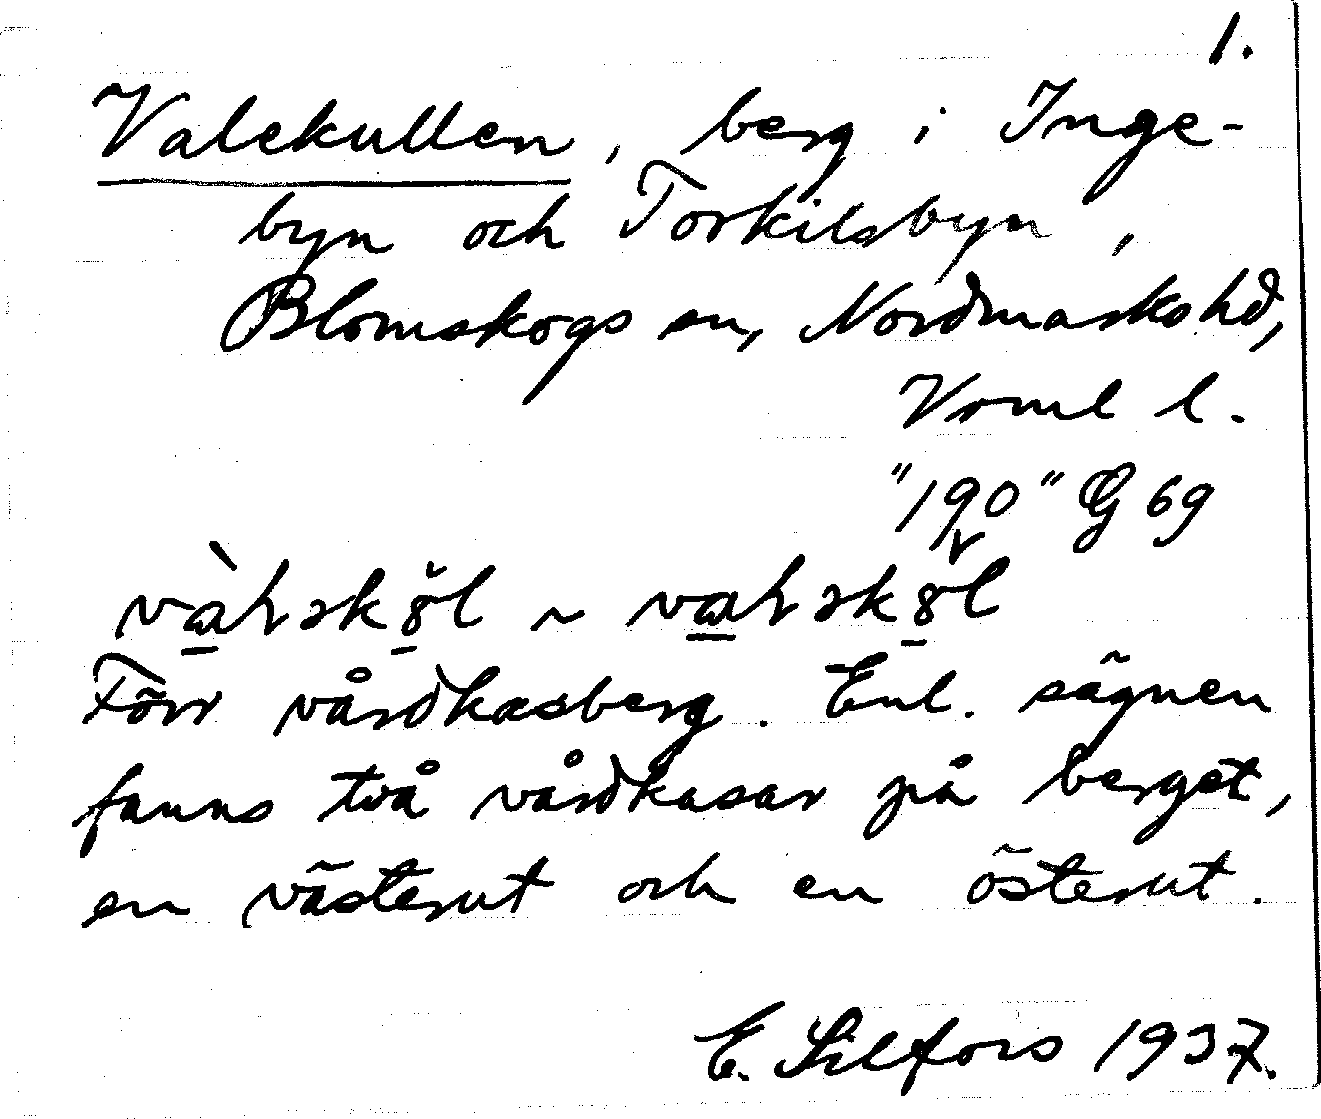 1.
Valekullen, berg i Inge-
byn och Torkilsbyn,
Blomskogs sn, Nordmarks hd,
Vrml l.
"190" G 69
Förr vårdkasberg. Enl. sägnen
fanns två vårdkasar på berget,
en västerut och en österut.
E. Lilfors 1937.